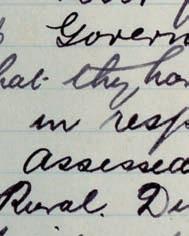 Govern
hat they ha
in resp
assessed
Rural. Di